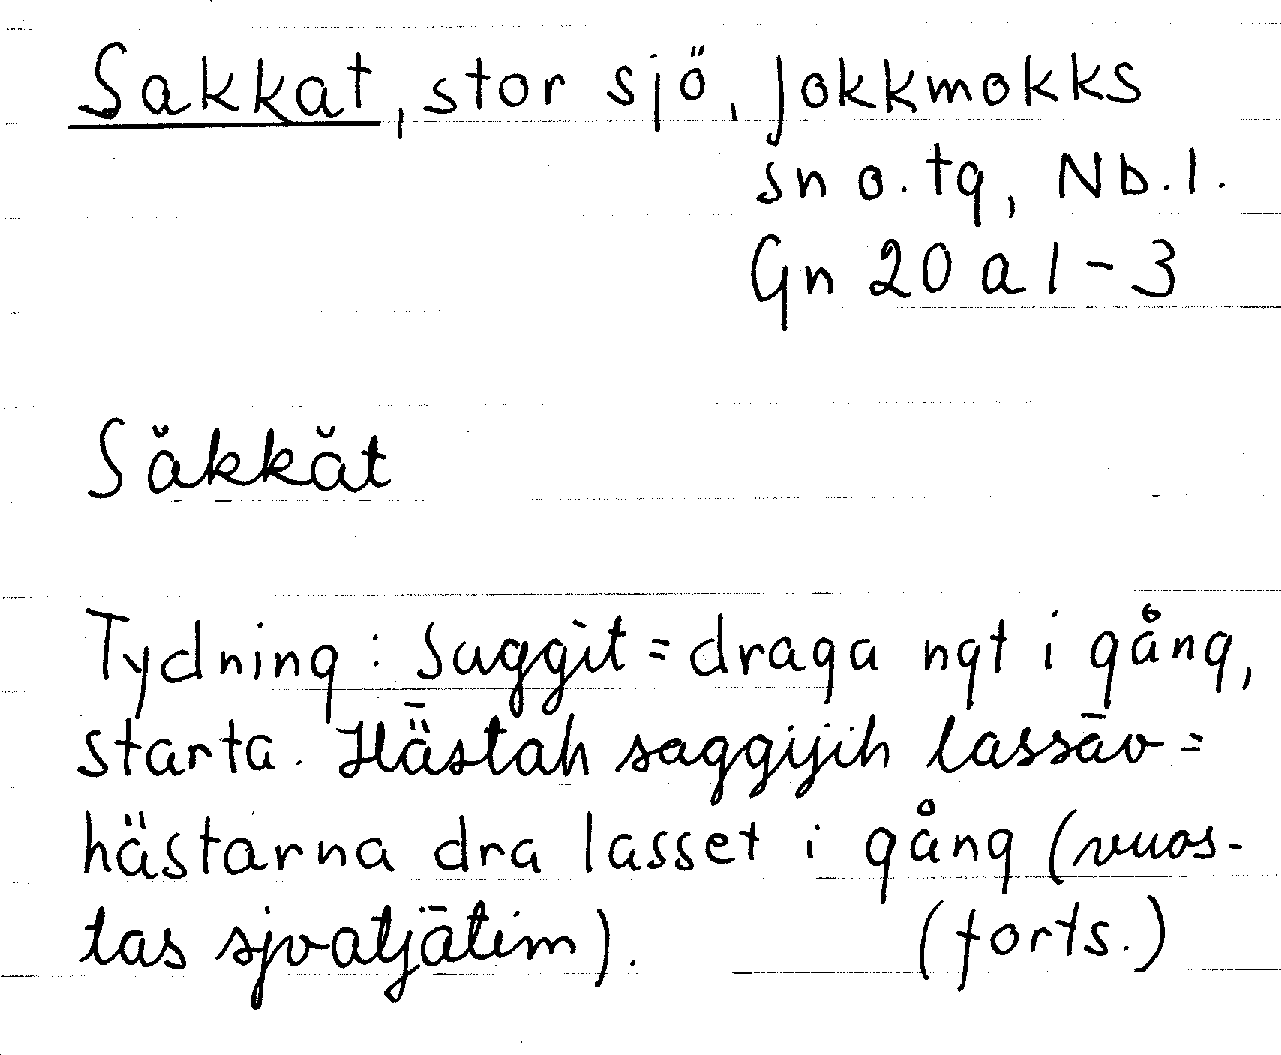 Sakkat, stor sjö, Jokkmokks
sn o. tg, Nb. l.
Gn 20 a 1-3
Săkkăt
Tydning: Saggit = draga ngt i gång,
starta. Hǟstah saggijih lassāv =
hästarna dra lasset i gång (vuos-
tas sjvatjātim). (forts.)